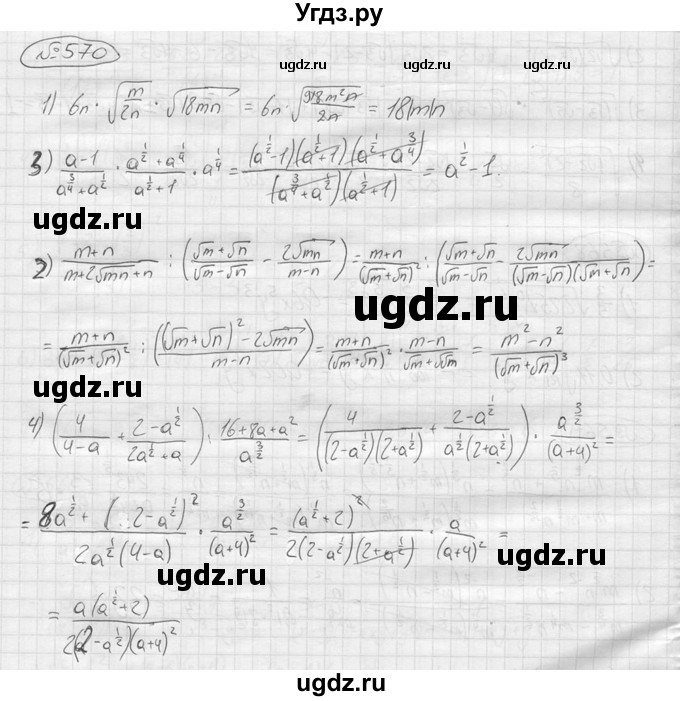 Угдз.ру
№570
ugdz.ru ugdz.ru
1) 6n · √(m/2n) · √(18mn) = 6n · √(18m²n/2n) = 18|m|n
3) (a-1)/(a^(3/4)+a^(1/2)) · (a^(1/2)+a^(1/4))/(a^(1/2)+1) · a^(1/4) = ((a^(1/2)-1)(a^(1/2)+1)(a^(1/2)+a^(3/4)))/((a^(3/4)+a^(1/2))(a^(1/2)+1)) = a^(1/2)-1.
ugdz.ru ugdz.ru
2) (m+n)/(m+2√(mn)+n) : ((√m+√n)/(√m-√n) - 2√(mn)/(m-n)) = (m+n)/(√m+√n)² : ((√m+√n)/(√m-√n) - 2√(mn)/((√m-√n)(√m+√n))) =
ugdz.ru
= (m+n)/(√m+√n)² : (((√m+√n)²-2√(mn))/(m-n)) = (m+n)/(√m+√n)² · (m-n)/(√m+√m) = (m²-n²)/(√m+√n)³
ugdz.ru ugdz.ru
4) (4/(4-a) + (2-a^(1/2))/(2a^(1/2)+a)) : (16+8a+a²)/a^(3/2) = (4/((2-a^(1/2))(2+a^(1/2))) + (2-a^(1/2))/(a^(1/2)(2+a^(1/2)))) · a^(3/2)/(a+4)² =
= (8a^(1/2) + (2-a^(1/2))²)/(2a^(1/2)(4-a)) · a^(3/2)/(a+4)² = (a^(1/2)+2)²/(2(2-a^(1/2))(2+a^(1/2))) · a/(a+4)² =
ugdz.ru ugdz.ru
= a(a^(1/2)+2)/(2(2-a^(1/2))(a+4)²)
ugdz.ru ugdz.ru
ugdz.ru